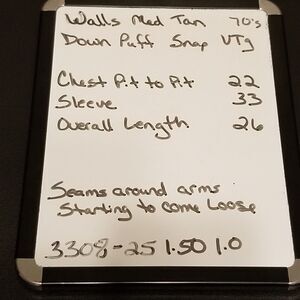 Walls Med Tan 70's
Down Puff Snap VTg
Chest Pit to Pit 22
Sleeve 33
Overall Length 26
Seams around arms
Starting to come Loose
3308-25 1.50 1.0